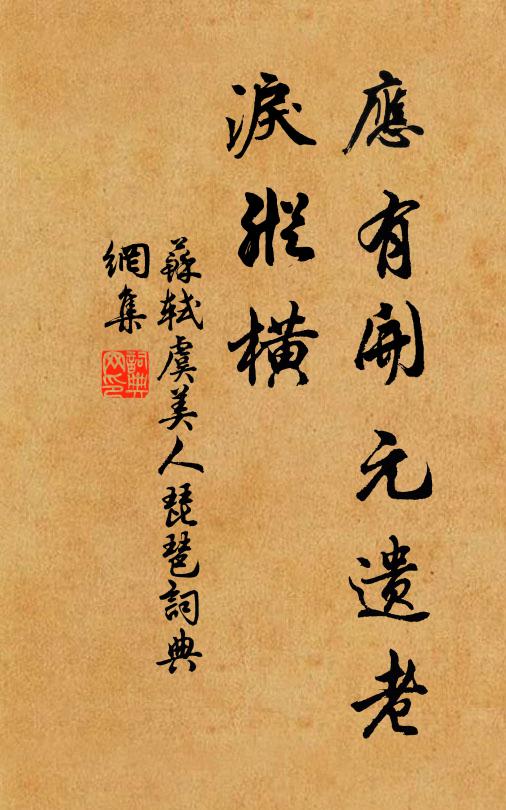 應有開元遺老
淚縱橫
蘇軾虞美人琵琶詞典
網集
詞典網印